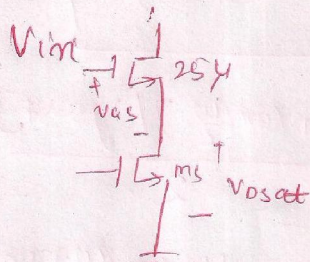 Vin
25μ
+
VGS
-
M5
VDSat
-